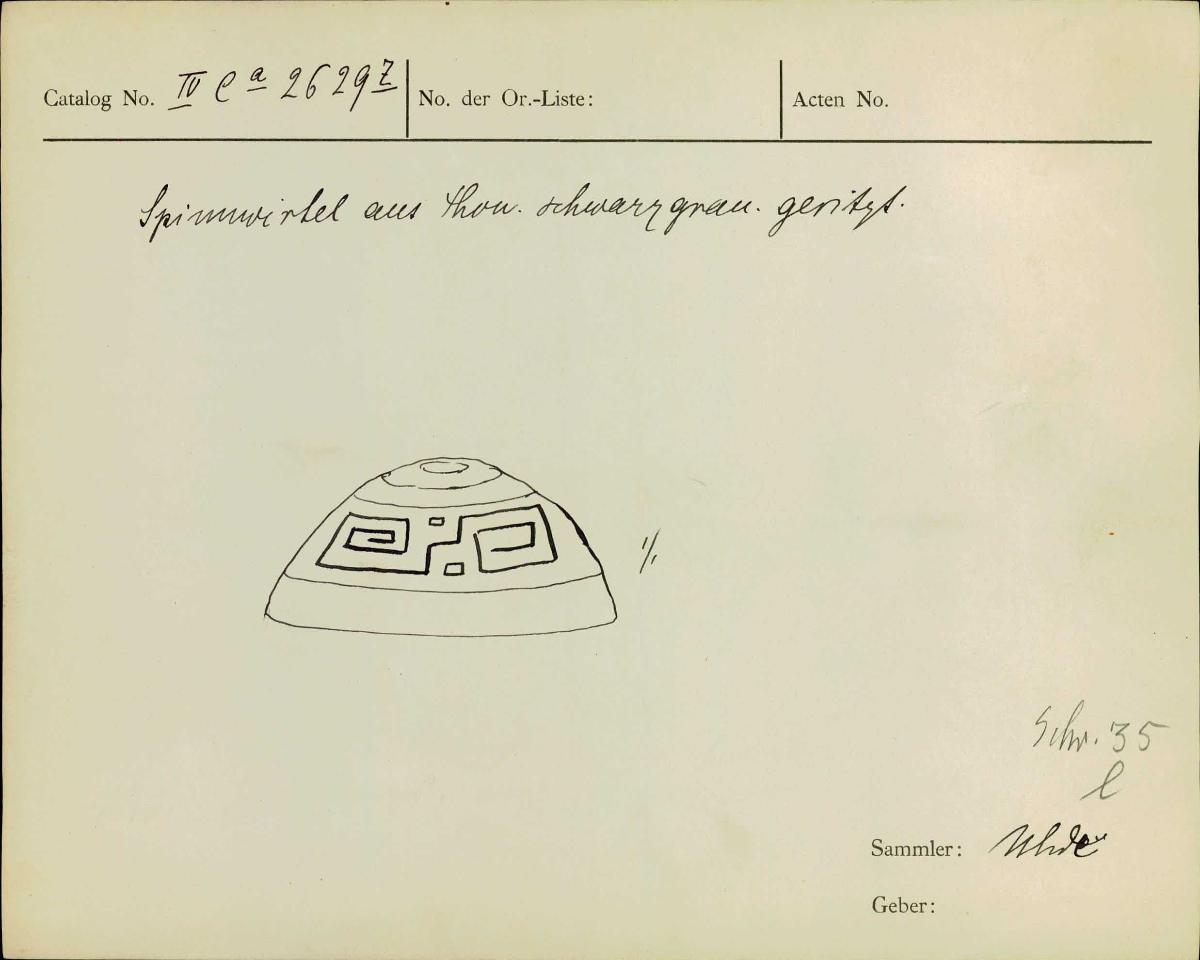 Catalog No. IV Ca 2629z No. der Or.-Liste: Acten No.
Spinnwirtel aus Thon. schwarzgrau. geritzt.
1/1
Schr. 35
l
Sammler: Uhde
Geber: